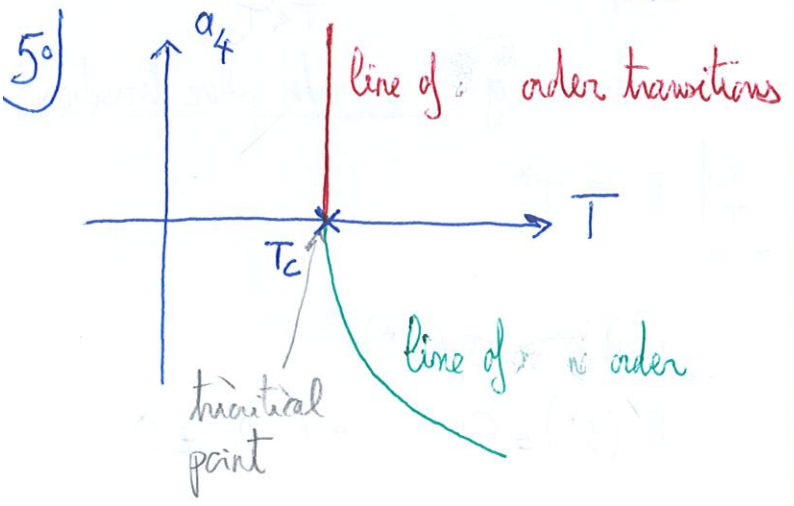 5°)
a4
line of order transitions
T
Tc
line of order
tricritical
point